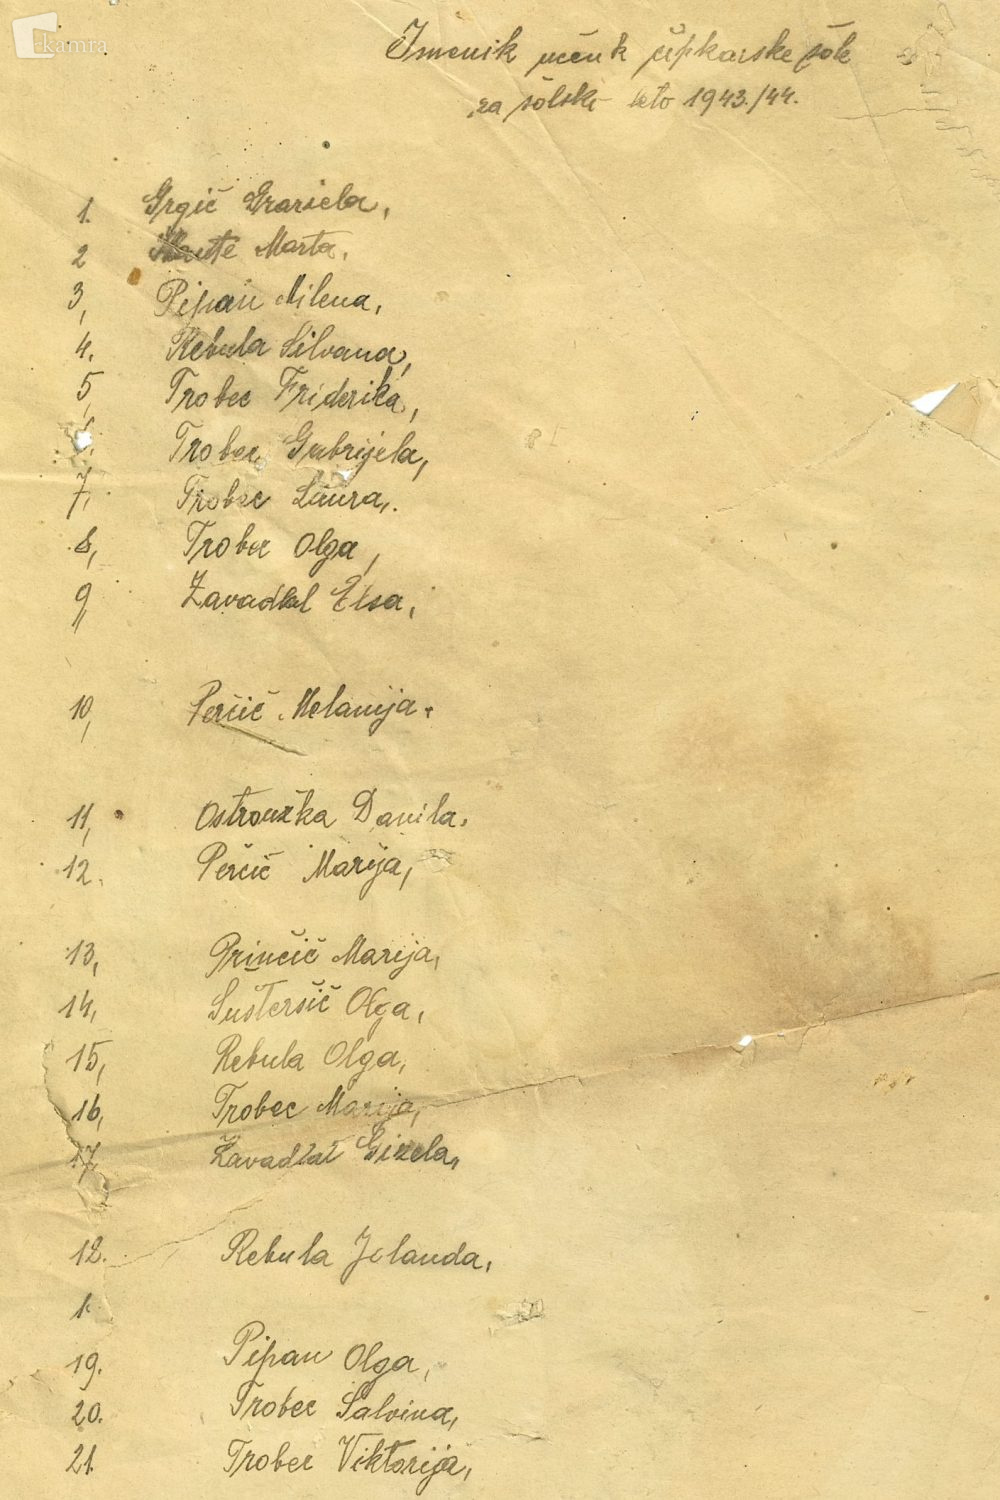 kamra
Imenik učenk čipkarske šole
za šolsko leto 1943./44.
1. Grgič Grasiela,
2 Marta,
3, Pipan Milena,
4. Rebula Silvana,
5, Trobec Friderika,
Trobec Gabrijela,
7, Trobec Laura,.
8, Trobec Olga,
9, Zavadlal Elsa,
10, Perčič Melanija.
11, Ostrouška Danila.
12. Perčič Marija,
13, Prinčič Marija,
14, Šušteršič Olga,
15, Rebula Olga,
16, Trobec Marija,
17, Zavadlal Gizela,
18. Rebula Jolanda,
1.
19. Pipan Olga,
20. Trobec Salvina,
21. Trobec Viktorija,